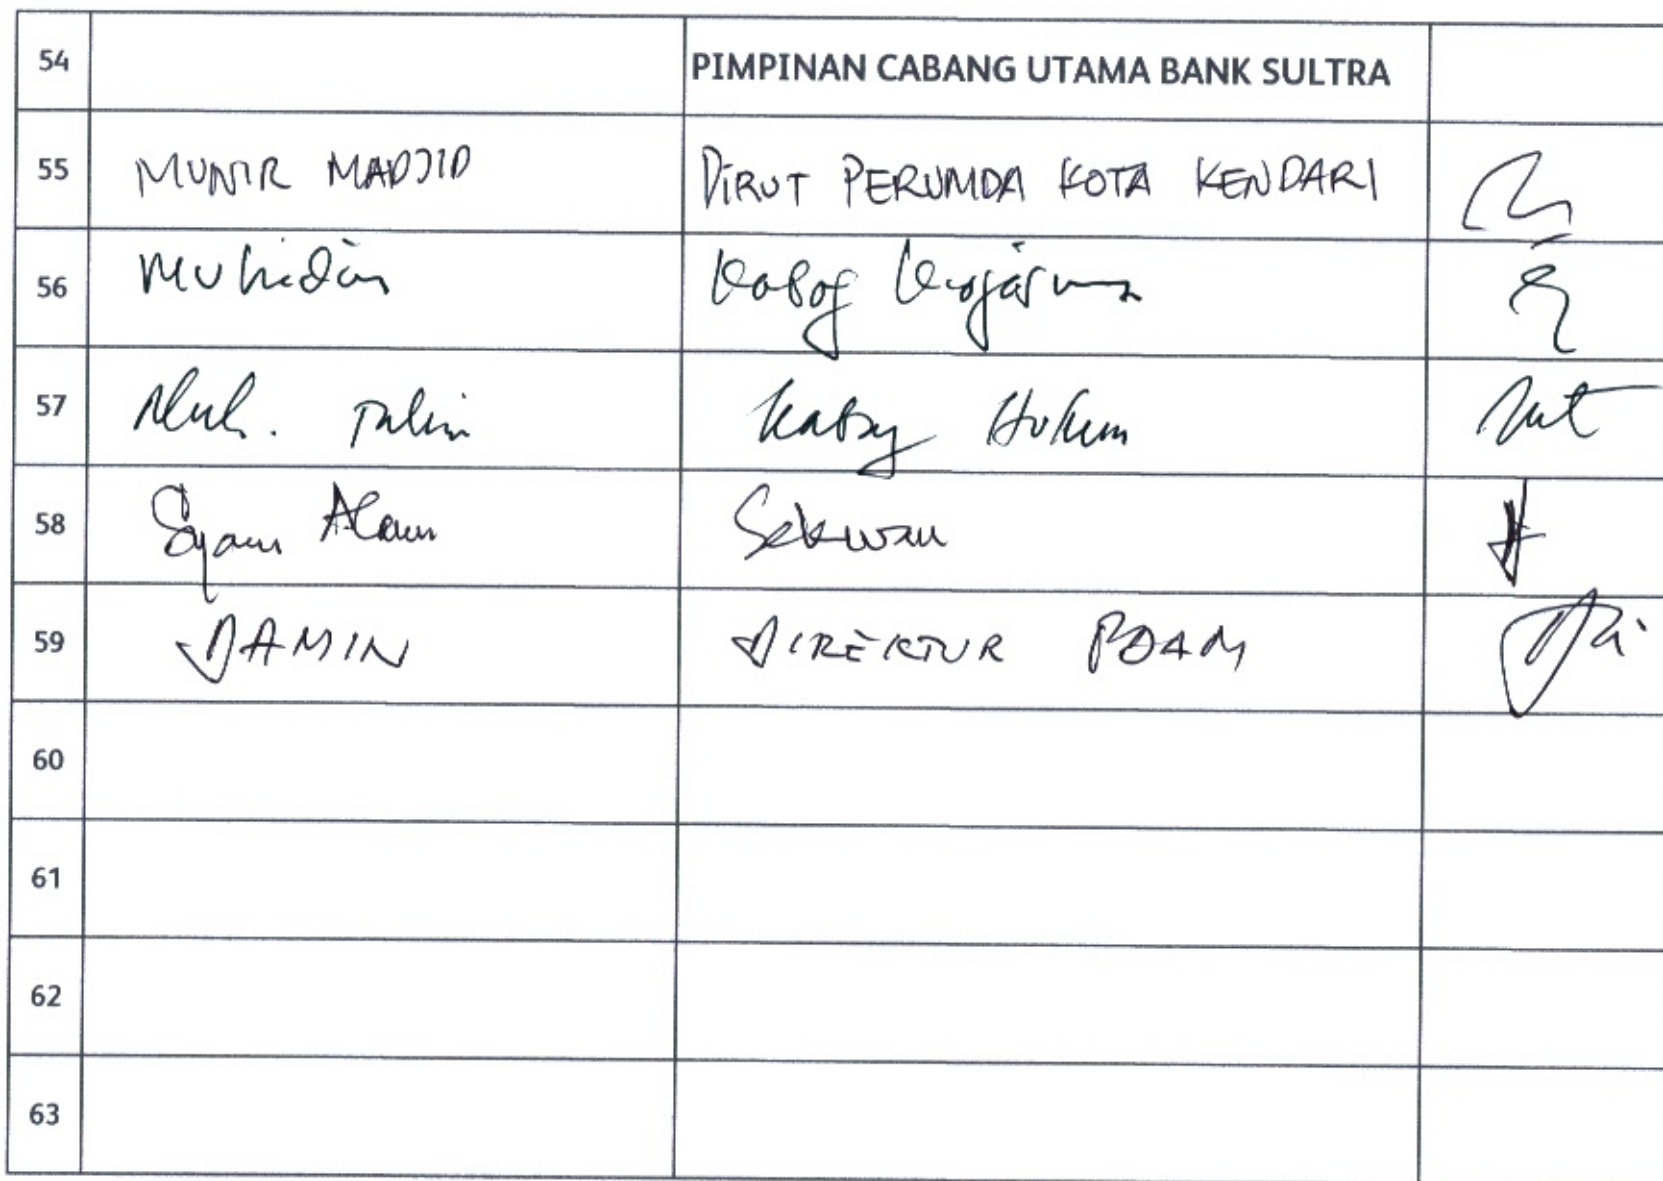 54 PIMPINAN CABANG UTAMA BANK SULTRA
55 MUNIR MADJID DIRUT PERUMDA KOTA KENDARI
56 Muhidin Kabag
57 Muh. Kabag Hukum
58 Syam Alam Sekwan
59 DAMIN DIREKTUR PDAM
60
61
62
63